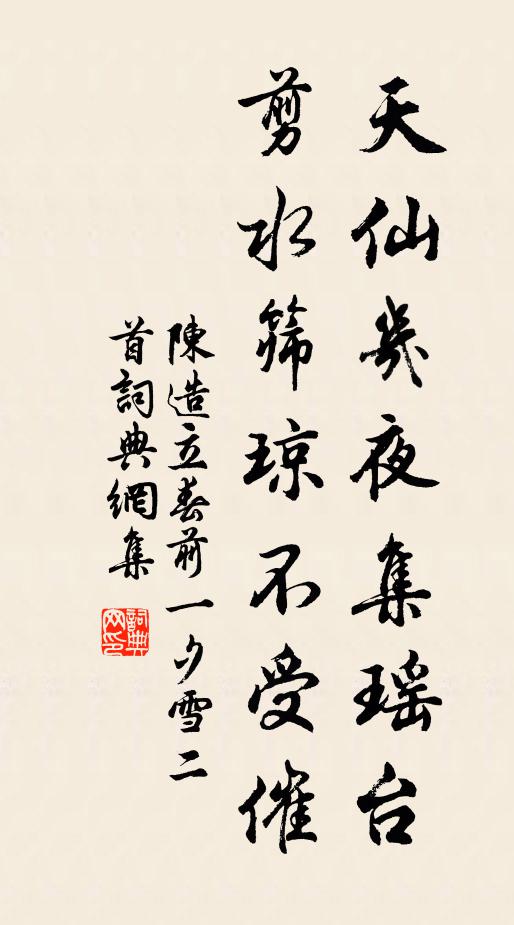 天仙幾夜集瑶台
剪水筛琼不受催
陳造立春前一夕雪二
首詞典網集
詞典
网印